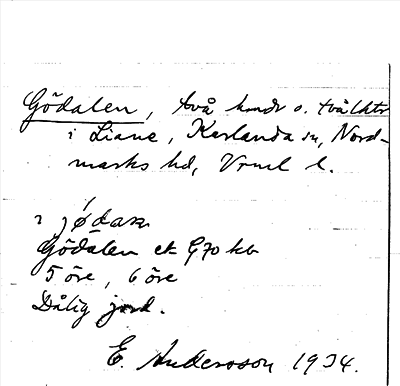 Gödalen, två hmdr o. två lhtr
i Liane, Karlanda sn, Nord-
marks hd, Vrml l.
i jødaɳ
Gödalen ek G70 kb
5 öre, 6 öre
Dålig jord.
E. Andersson 1934.